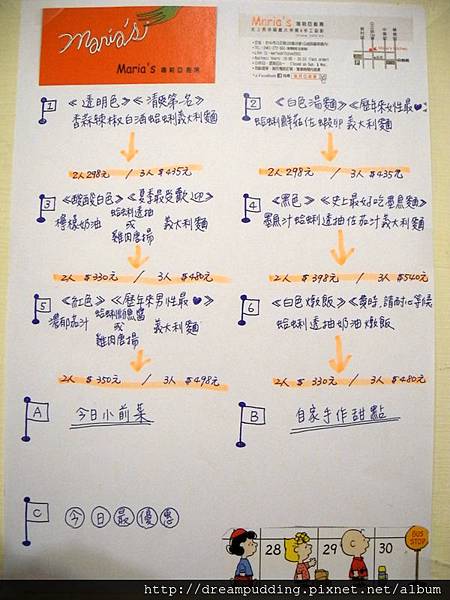 Maria's
Maria's 瑪莉亞廚房
Maria's 瑪莉亞廚房
1 ≪透明色≫≪清爽第一名≫
香蒜辣椒白酒蛤蜊義大利麵
2人 298元 / 3人 $435元
2 ≪白色湯麵≫≪歷年來女性最♥≫
蛤蜊鮮菇佐蝦卵義大利麵
2人 298元 / 3人 $435元
3 ≪酸酸白色≫≪夏季最受歡迎≫
檸檬奶油 蛤蜊透抽 或 雞肉唐揚 義大利麵
2人 $330元 / 3人 $480元
4 ≪黑色≫≪史上最好吃墨魚麵≫
墨魚汁蛤蜊透抽佐茄汁義大利麵
2人 $398元 / 3人 $540元
5 ≪紅色≫≪歷年來男性最♥≫
濃郁茄汁 蛤蜊 或 雞肉唐揚 義大利麵
2人 $350元 / 3人 $498元
6 ≪白色燉飯≫≪費時,請耐心等候≫
蛤蜊透抽奶油燉飯
2人 $330元 / 3人 $480元
A 今日小前菜
B 自家手作甜點
C 今日最優惠
28 29 30
BUS STOP
http://dreampudding.pixnet.net/album